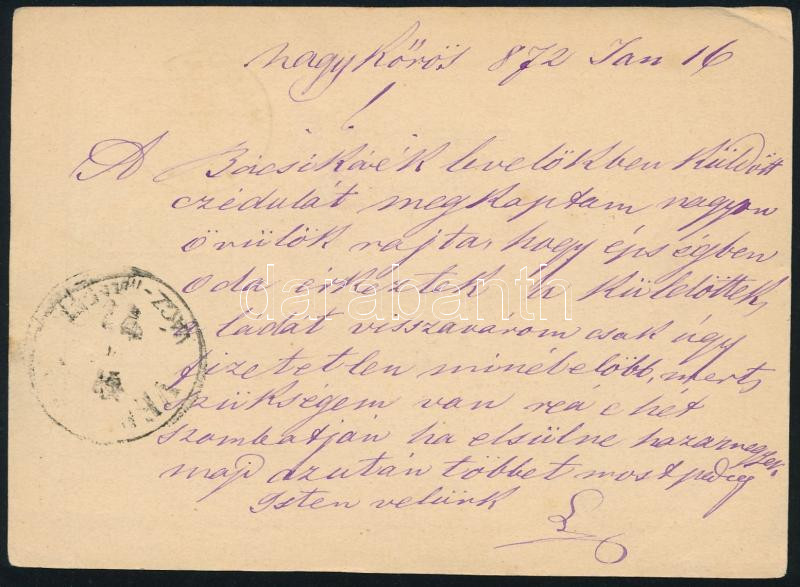 Nagy Kőrös 872 Jan 16
A Bácsikáék levelökben küldött
czédulát megkaptam nagyon
örülök rajta, hogy épségben
oda érkeztek a küldöttek,
a ládát visszavárom csak úgy
fizetetlen minébelöbb, mert
szükségem van reá e hét
szombatján ha elsülne haza megyek
majd azután többet most pedig
Isten velünk
L
darabanth